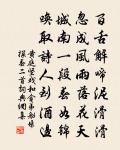 百舌解啼泥滑滑
忽成風雨落花天
城南一段春如錦
喚取詩人到酒邊
黃庭堅戲和舍弟船場
探春二首詞典網集